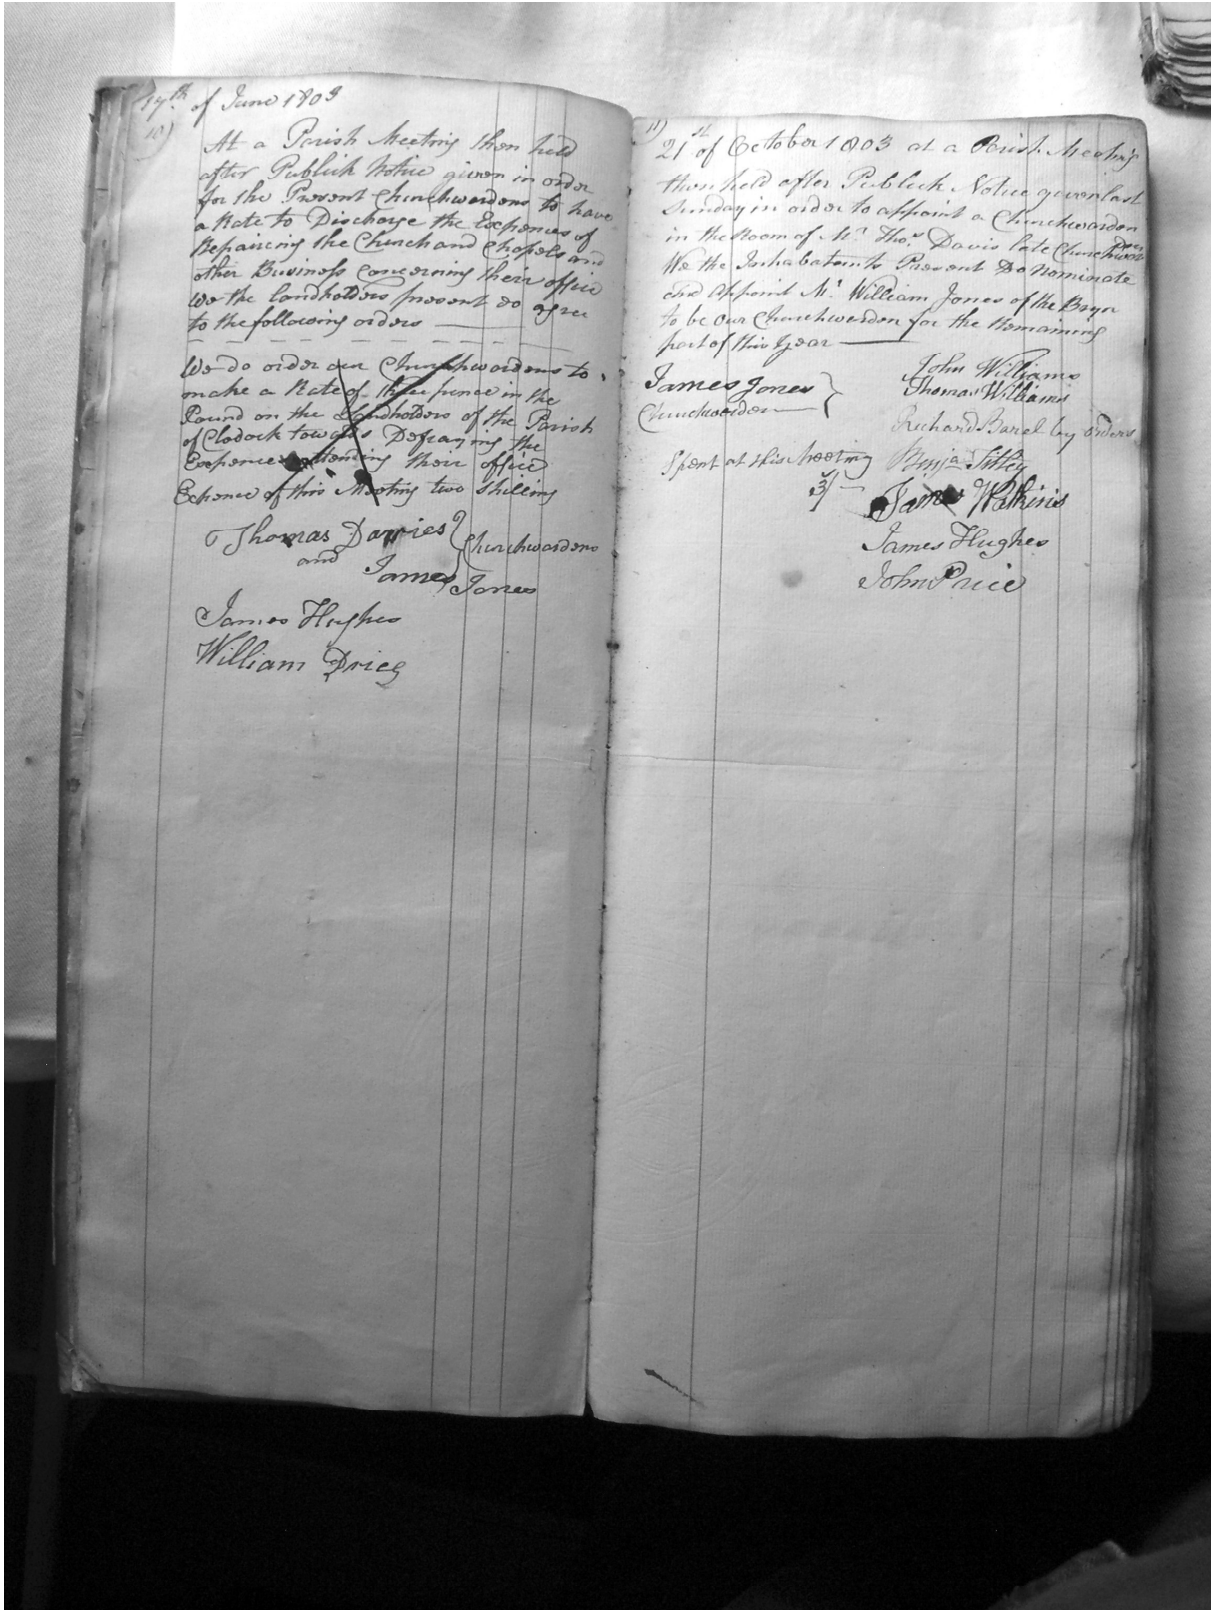 17th of June 1803
10)
At a Parish Meeting then held
after Publick Notice given in order
for the Present Churchwardens to have
a Rate to Discharge the Expences of
Repairing the Church and Chapels and
other Business Concerning their office
We the landholders present do agree
to the following orders
We do order our Churchwardens to
make a Rate of Three pence in the
Pound on the Landholders of the Parish
of Clodock towards Defraying the
Expences attening their office
Expence of this Meeting two shilling
Thomas Davies
and James Jones
Churchwardens
James Hughes
William Price
11)
21st of October 1803 at a Parish Meeting
then held after Publick Notice given last
Sunday in order to appoint a Churchwarden
in the Room of Mr Thos Davis late Churchwarden
We the Inhabatants Present Do nominate
and Appoint Mr William Jones of the Bryn
to be our Churchwarden for the Remaining
part of this Year
James Jones
Churchwarden
John Williams
Thomas Williams
Richard Barel by orders
Spent at this Meeting
3/-
Benja Tilley
James Watkins
James Hughes
John Price